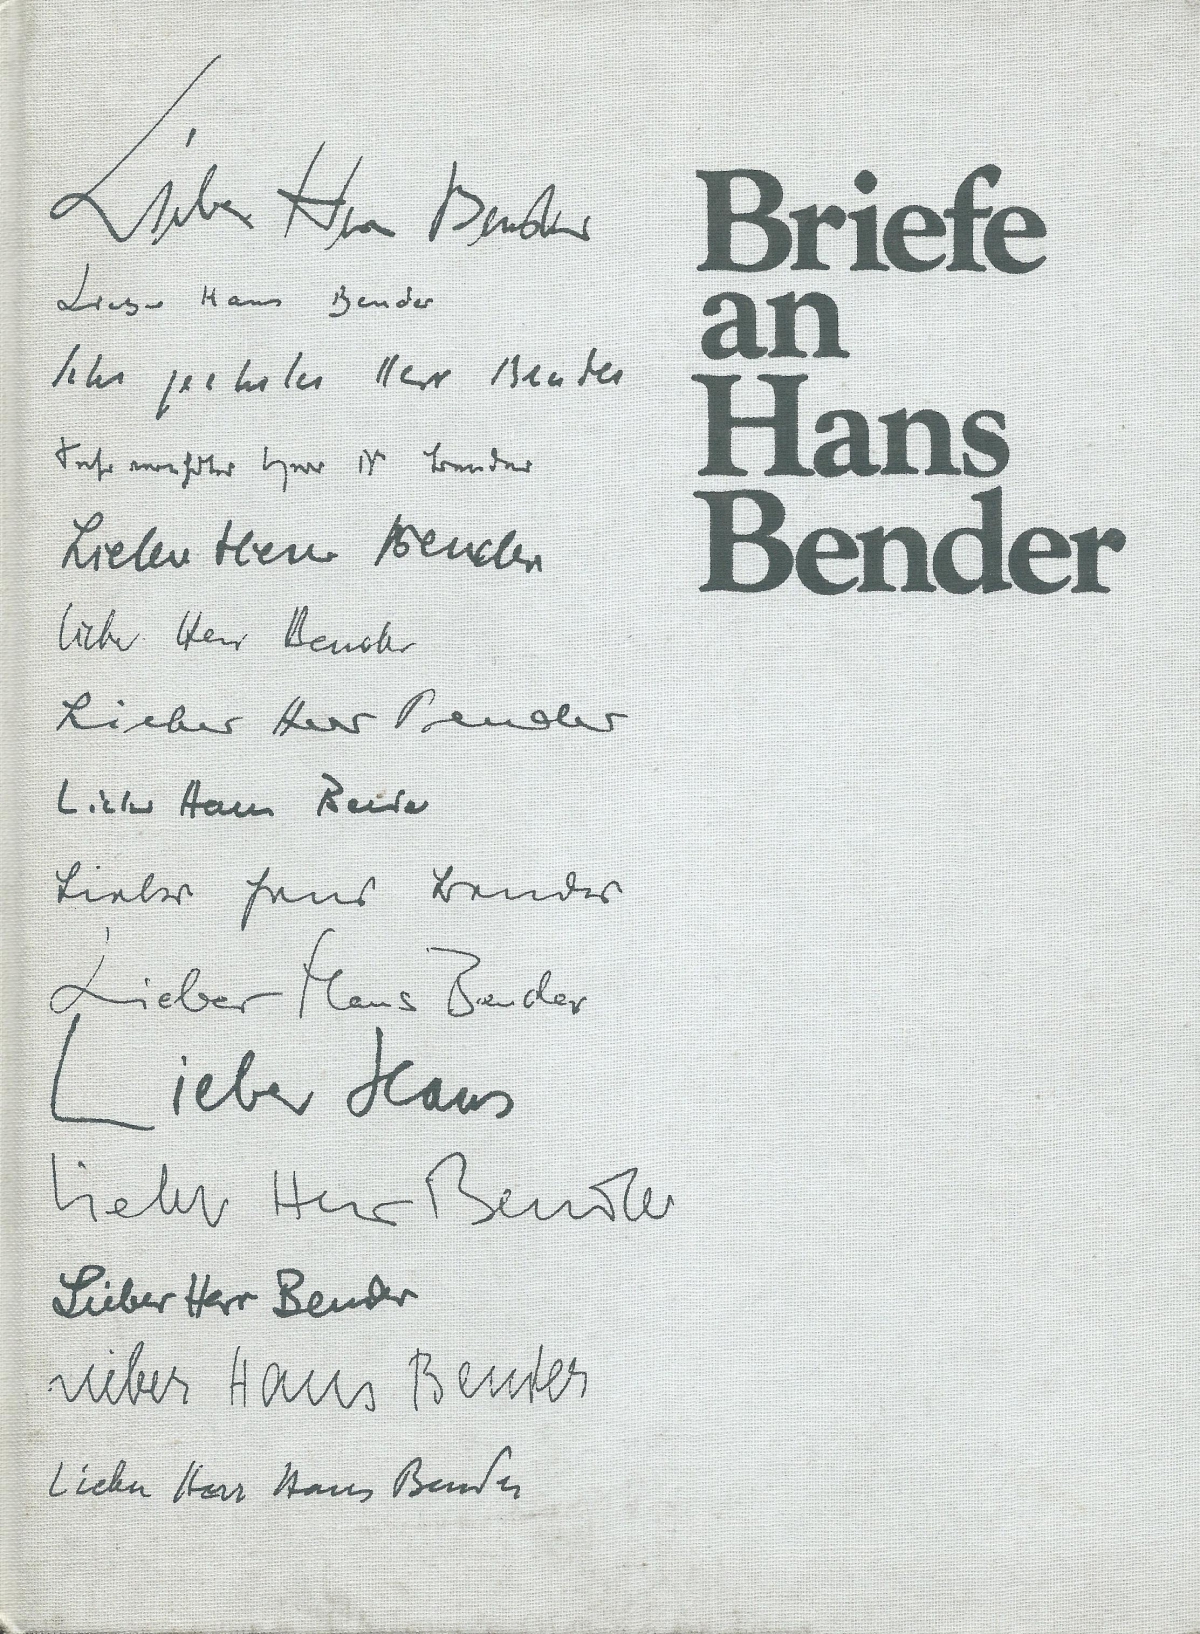 Lieber Herr Bender
Lieber Hans Bender
Sehr geehrter Herr Bender
Sehr verehrter Herr Bender
Lieber Herr Bender
Lieber Herr Bender
Lieber Herr Bender
Lieber Hans Bender
Lieber Hans Bender
Lieber Hans Bender
Lieber Hans
Lieber Herr Bender
Lieber Herr Bender
Lieber Hans Bender
Lieber Herr Hans Bender
Briefe
an
Hans
Bender